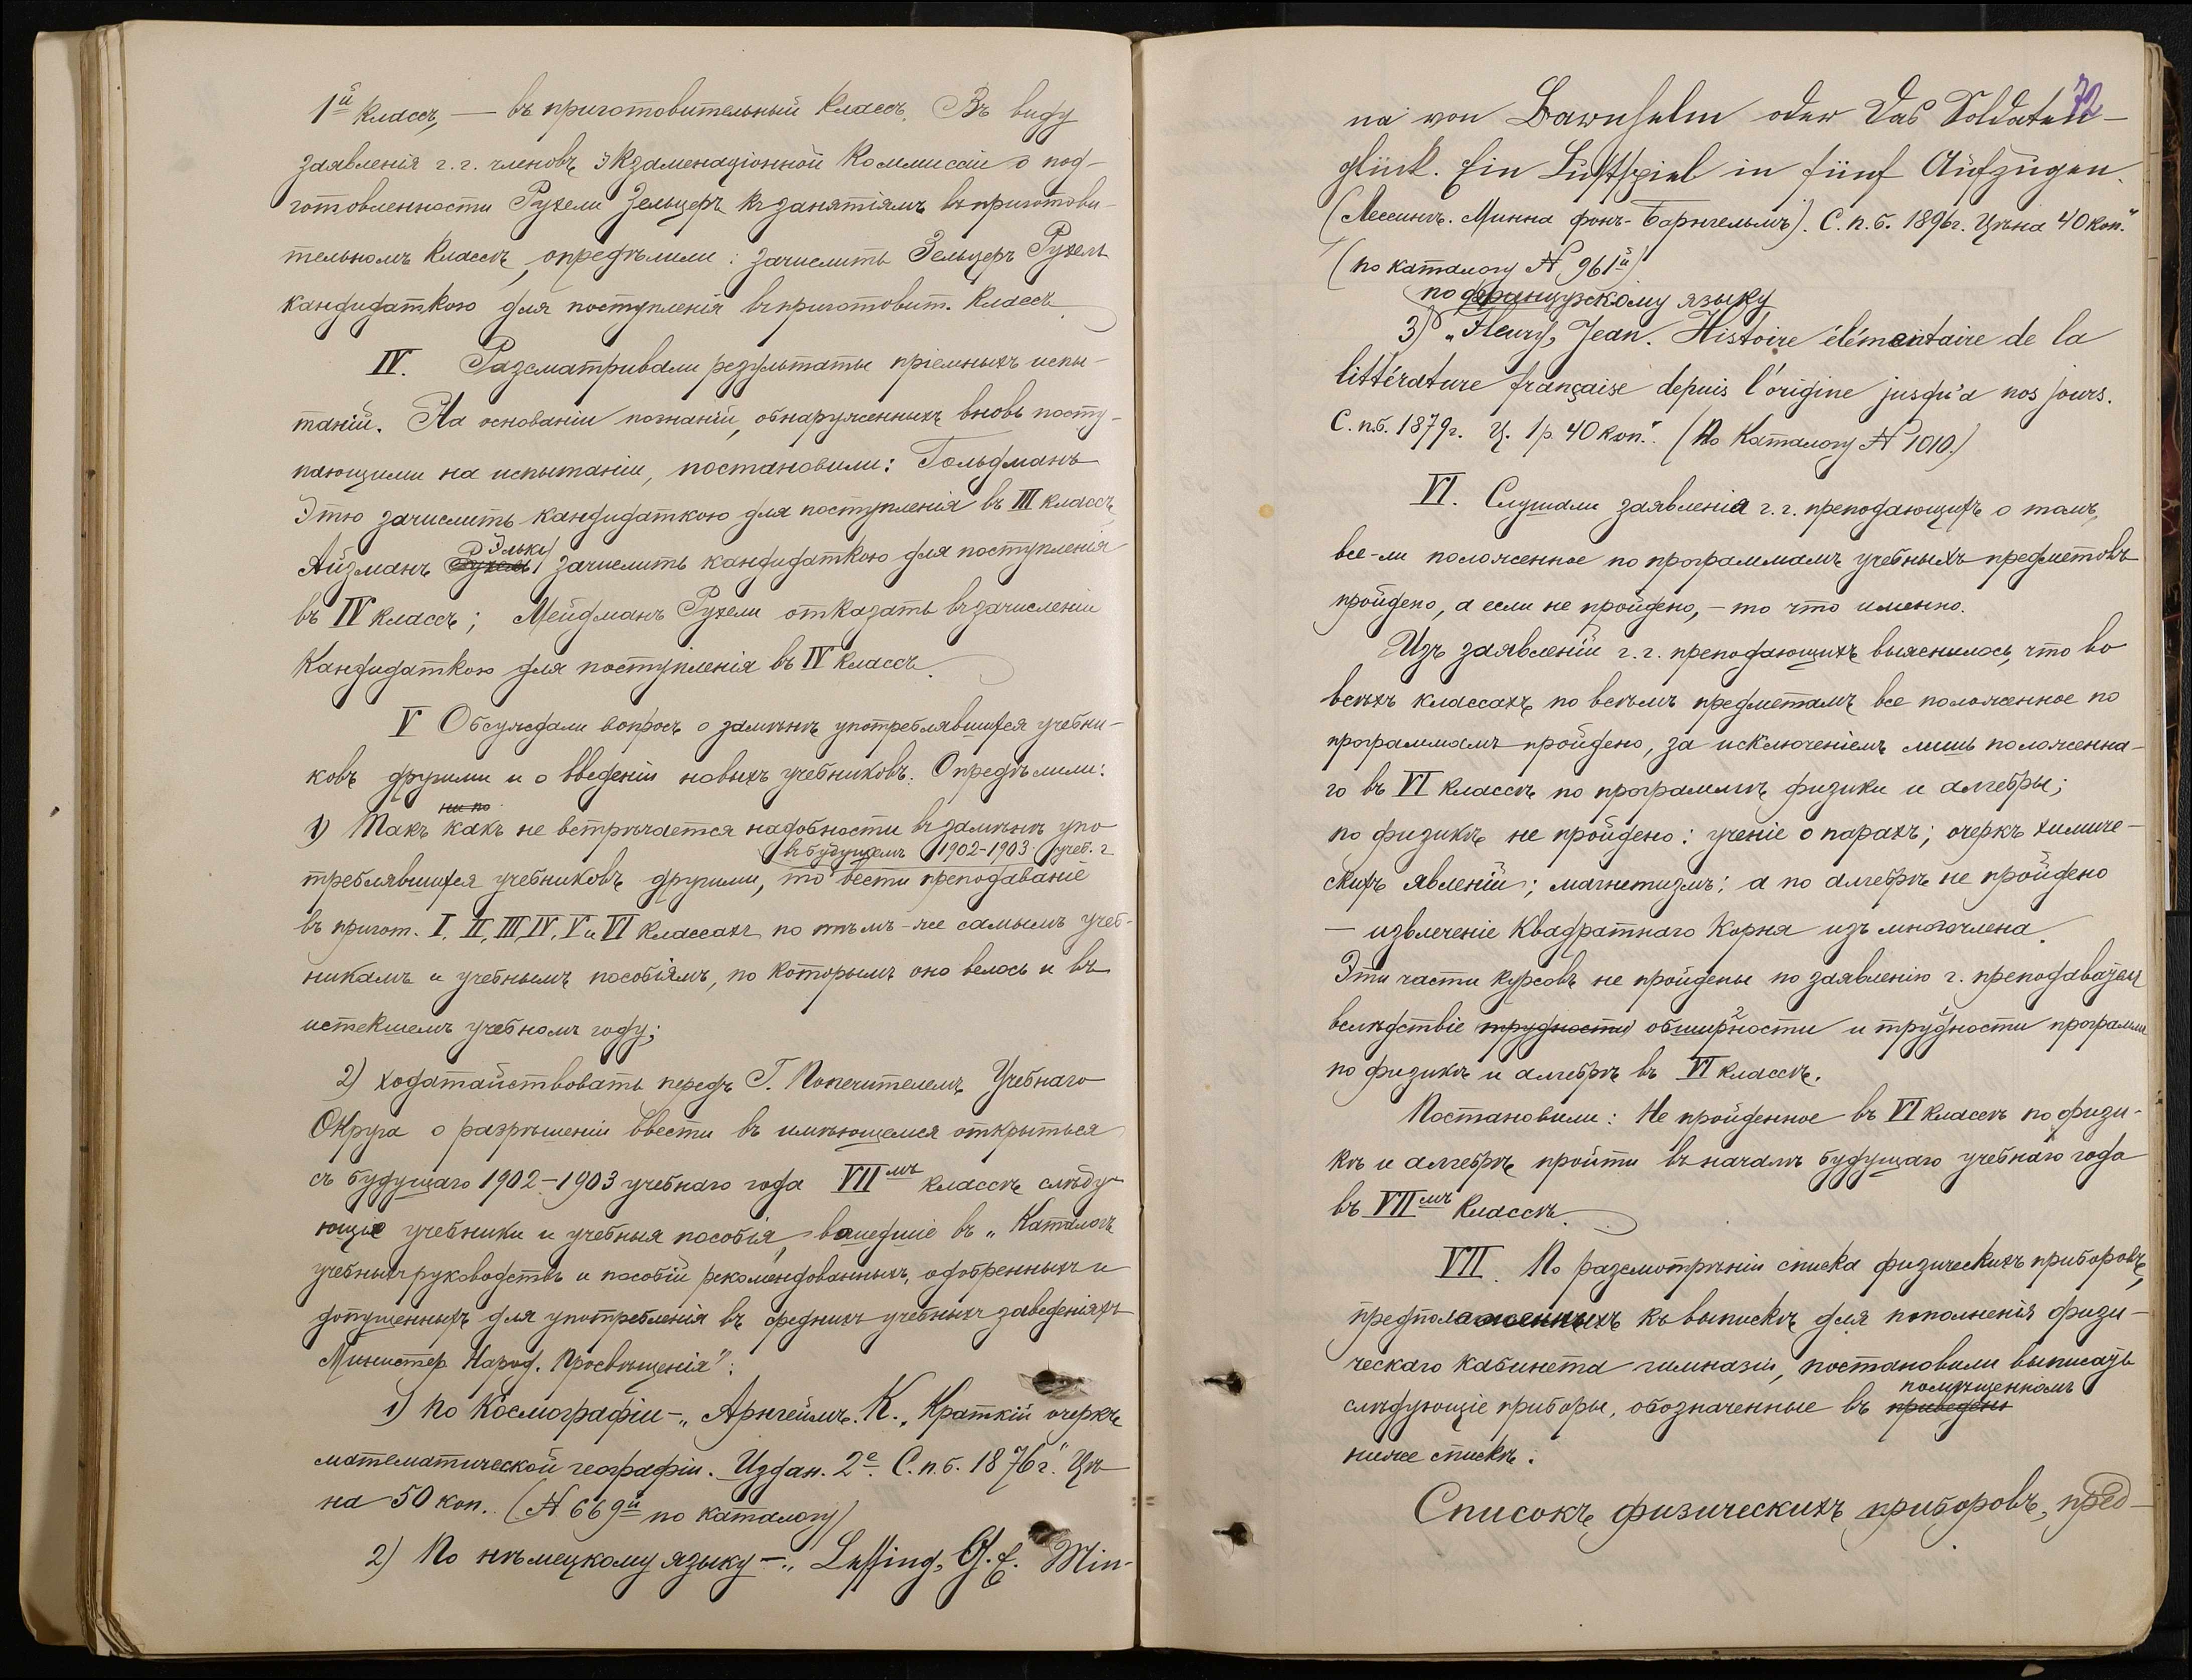 1й классъ, — въ приготовительный классъ. Въ виду
заявленія г.г. членовъ экзаменаціонной Коммисаіи о под-
готовленности Рухели Зельцеръ къ занятіямъ въ приготови-
тельномъ классѣ, опредѣлили: зачислить Зельцеръ Рухель
кандидаткою для поступленія въ приготовит. классъ.
IV. Разсматривали результаты пріемныхъ испы-
таній. На основаніи познаній, обнаруженныхъ вновь посту-
пающими на испытаніи, постановили: Гольдманъ
Этю зачислить кандидаткою для поступленія въ III классъ,
Эльку
Айзманъ Рухель зачислить кандидаткою для поступленія
въ IV классъ; Мейдманъ Рухели отказать въ зачисленіи
кандидаткою для поступленія въ IV классъ.
V Обсуждали вопросъ о замѣнѣ употреблявшихся учебни-
ковъ другими и о введеніи новыхъ учебниковъ. Опредѣлили:
ни по
1) Такъ какъ не встрѣчается надобности въ замѣнѣ упо
въ будущемъ 1902-1903 учеб. г.
треблявшихся учебниковъ другими, то вести преподаваніе
въ пригот. I, II, III, IV, V и VI классахъ по тѣмъ-же самымъ учеб-
никамъ и учебнымъ пособіямъ, по которымъ оно велось и въ
истекшемъ учебномъ году;
2) ходатайствовать передъ Г. Попечителемъ Учебнаго
Округа о разрѣшеніи ввести въ имѣющемся открыться
съ будущаго 1902-1903 учебнаго года VIIмъ классѣ слѣду-
ющіе учебники и учебныя пособія, вошедшіе въ „Каталогъ
учебныхъ руководствъ и пособій рекомендованныхъ, одобренныхъ и
допущенныхъ для употребленія въ средних учебныхъ заведеніяхъ
Министер. Народ. Просвѣщенія":
1) По Космографіи — „Арнгеймъ. К., Краткій очеркъ
математической географіи. Издан. 2е. С.п.б. 1876г." Цѣ-
на 50 коп. (№ 669й по каталогу)
2) По нѣмецкому языку — „Lessing, G. E. Min-
72
na von Barnhelm oder das Soldaten-
glück. Ein Lustspiel in fünf Aufzügen.
(Лессингъ. Минна фонъ-Барнгельмъ). С.п.б. 1896г. Цѣна 40 коп."
(по каталогу № 961й)
по французскому языку
3) „Fleury, Jean. Histoire élémentaire de la
littérature française depuis l'origine jusqu'a nos jours.
С.п.б. 1879г. Ц. 1р. 40 коп." (По Каталогу № 1010.)
VI. Слушали заявленія г.г. преподающихъ о томъ,
все-ли положенное по программамъ учебныхъ предметовъ
пройдено, а если не пройдено, — то что именно.
Изъ заявленій г.г. преподающихъ выяснилось, что во
всѣхъ классахъ по всѣмъ предметамъ все положенное по
программамъ пройдено, за исключеніемъ лишь положенна-
го въ VI классѣ по программѣ физики и алгебры;
по физикѣ не пройдено: ученіе о парахъ; очеркъ химиче-
скихъ явленій; магнетизмъ; а по алгебрѣ не пройдено
— извлеченіе квадратнаго корня изъ многочлена.
Эти части курсовъ не пройдены по заявленію г. преподавателя
вслѣдствіе трудности обширности и трудности программ
по физикѣ и алгебрѣ въ VI классѣ.
Постановили: Не пройденное въ VI классѣ по физи-
кѣ и алгебрѣ пройти въ началѣ будущаго учебнаго года
въ VIIмъ классѣ.
VII. По разсмотрѣніи списка физическихъ приборовъ,
предположенныхъ къ выпискѣ для пополненія физи-
ческаго кабинета гимназіи, постановили выписать
помѣщенномъ
слѣдующіе приборы, обозначенные въ приведен
ниже спискѣ:
Списокъ физическихъ приборовъ, пред-